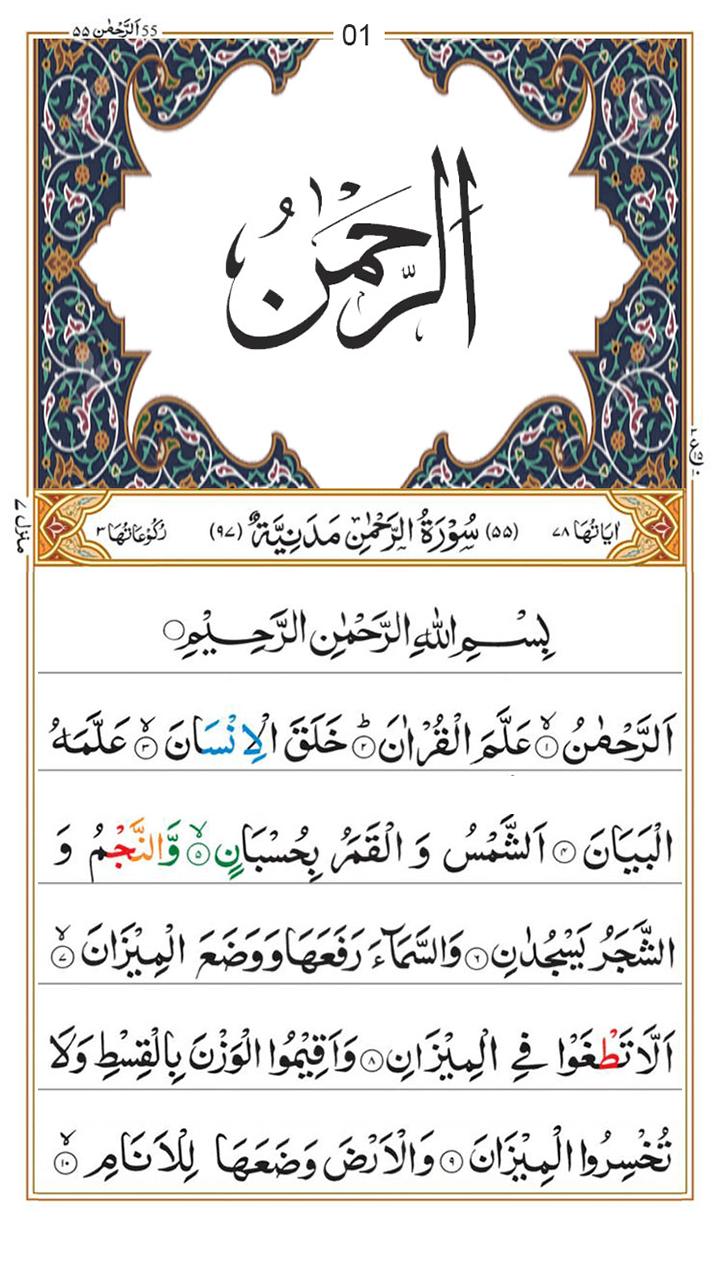 55 اَلرَّحْمٰن ۵۵
01
اَلرَّحْمٰنُ
منزل ٧
اٰیَاتُهَا ۷۸ (۵۵) سُوْرَةُ الرَّحْمٰنِ مَدَنِیَّةٌ (۹۷) رُكُوْعَاتُهَا ۳
بِسْمِ اللّٰهِ الرَّحْمٰنِ الرَّحِیْمِ
اَلرَّحْمٰنُ ۙ﴿۱﴾ عَلَّمَ الْقُرْاٰنَ ؕ﴿۲﴾ خَلَقَ الْاِنْسَانَ ۙ﴿۳﴾ عَلَّمَهُ
الْبَیَانَ ﴿۴﴾ اَلشَّمْسُ وَ الْقَمَرُ بِحُسْبَانٍ ۙ﴿۵﴾ وَّالنَّجْمُ وَ
الشَّجَرُ یَسْجُدٰنِ ﴿۶﴾ وَالسَّمَآءَ رَفَعَهَا وَوَضَعَ الْمِیْزَانَ ۙ﴿۷﴾
اَلَّا تَطْغَوْا فِی الْمِیْزَانِ ﴿۸﴾ وَاَقِیْمُوا الْوَزْنَ بِالْقِسْطِ وَلَا
تُخْسِرُوا الْمِیْزَانَ ﴿۹﴾ وَالْاَرْضَ وَضَعَهَا لِلْاَنَامِ ۙ﴿۱۰﴾